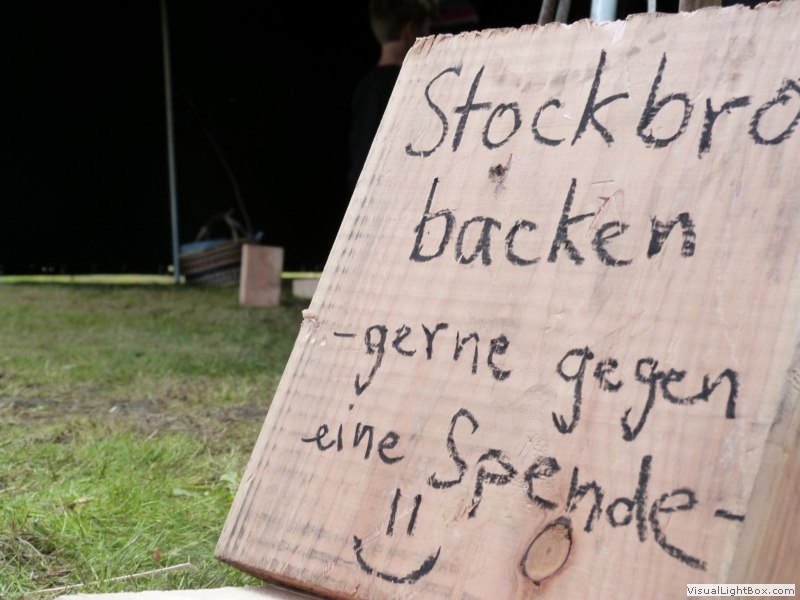 Stockbro
backen
-gerne gegen
eine Spende-
VisualLightBox.com